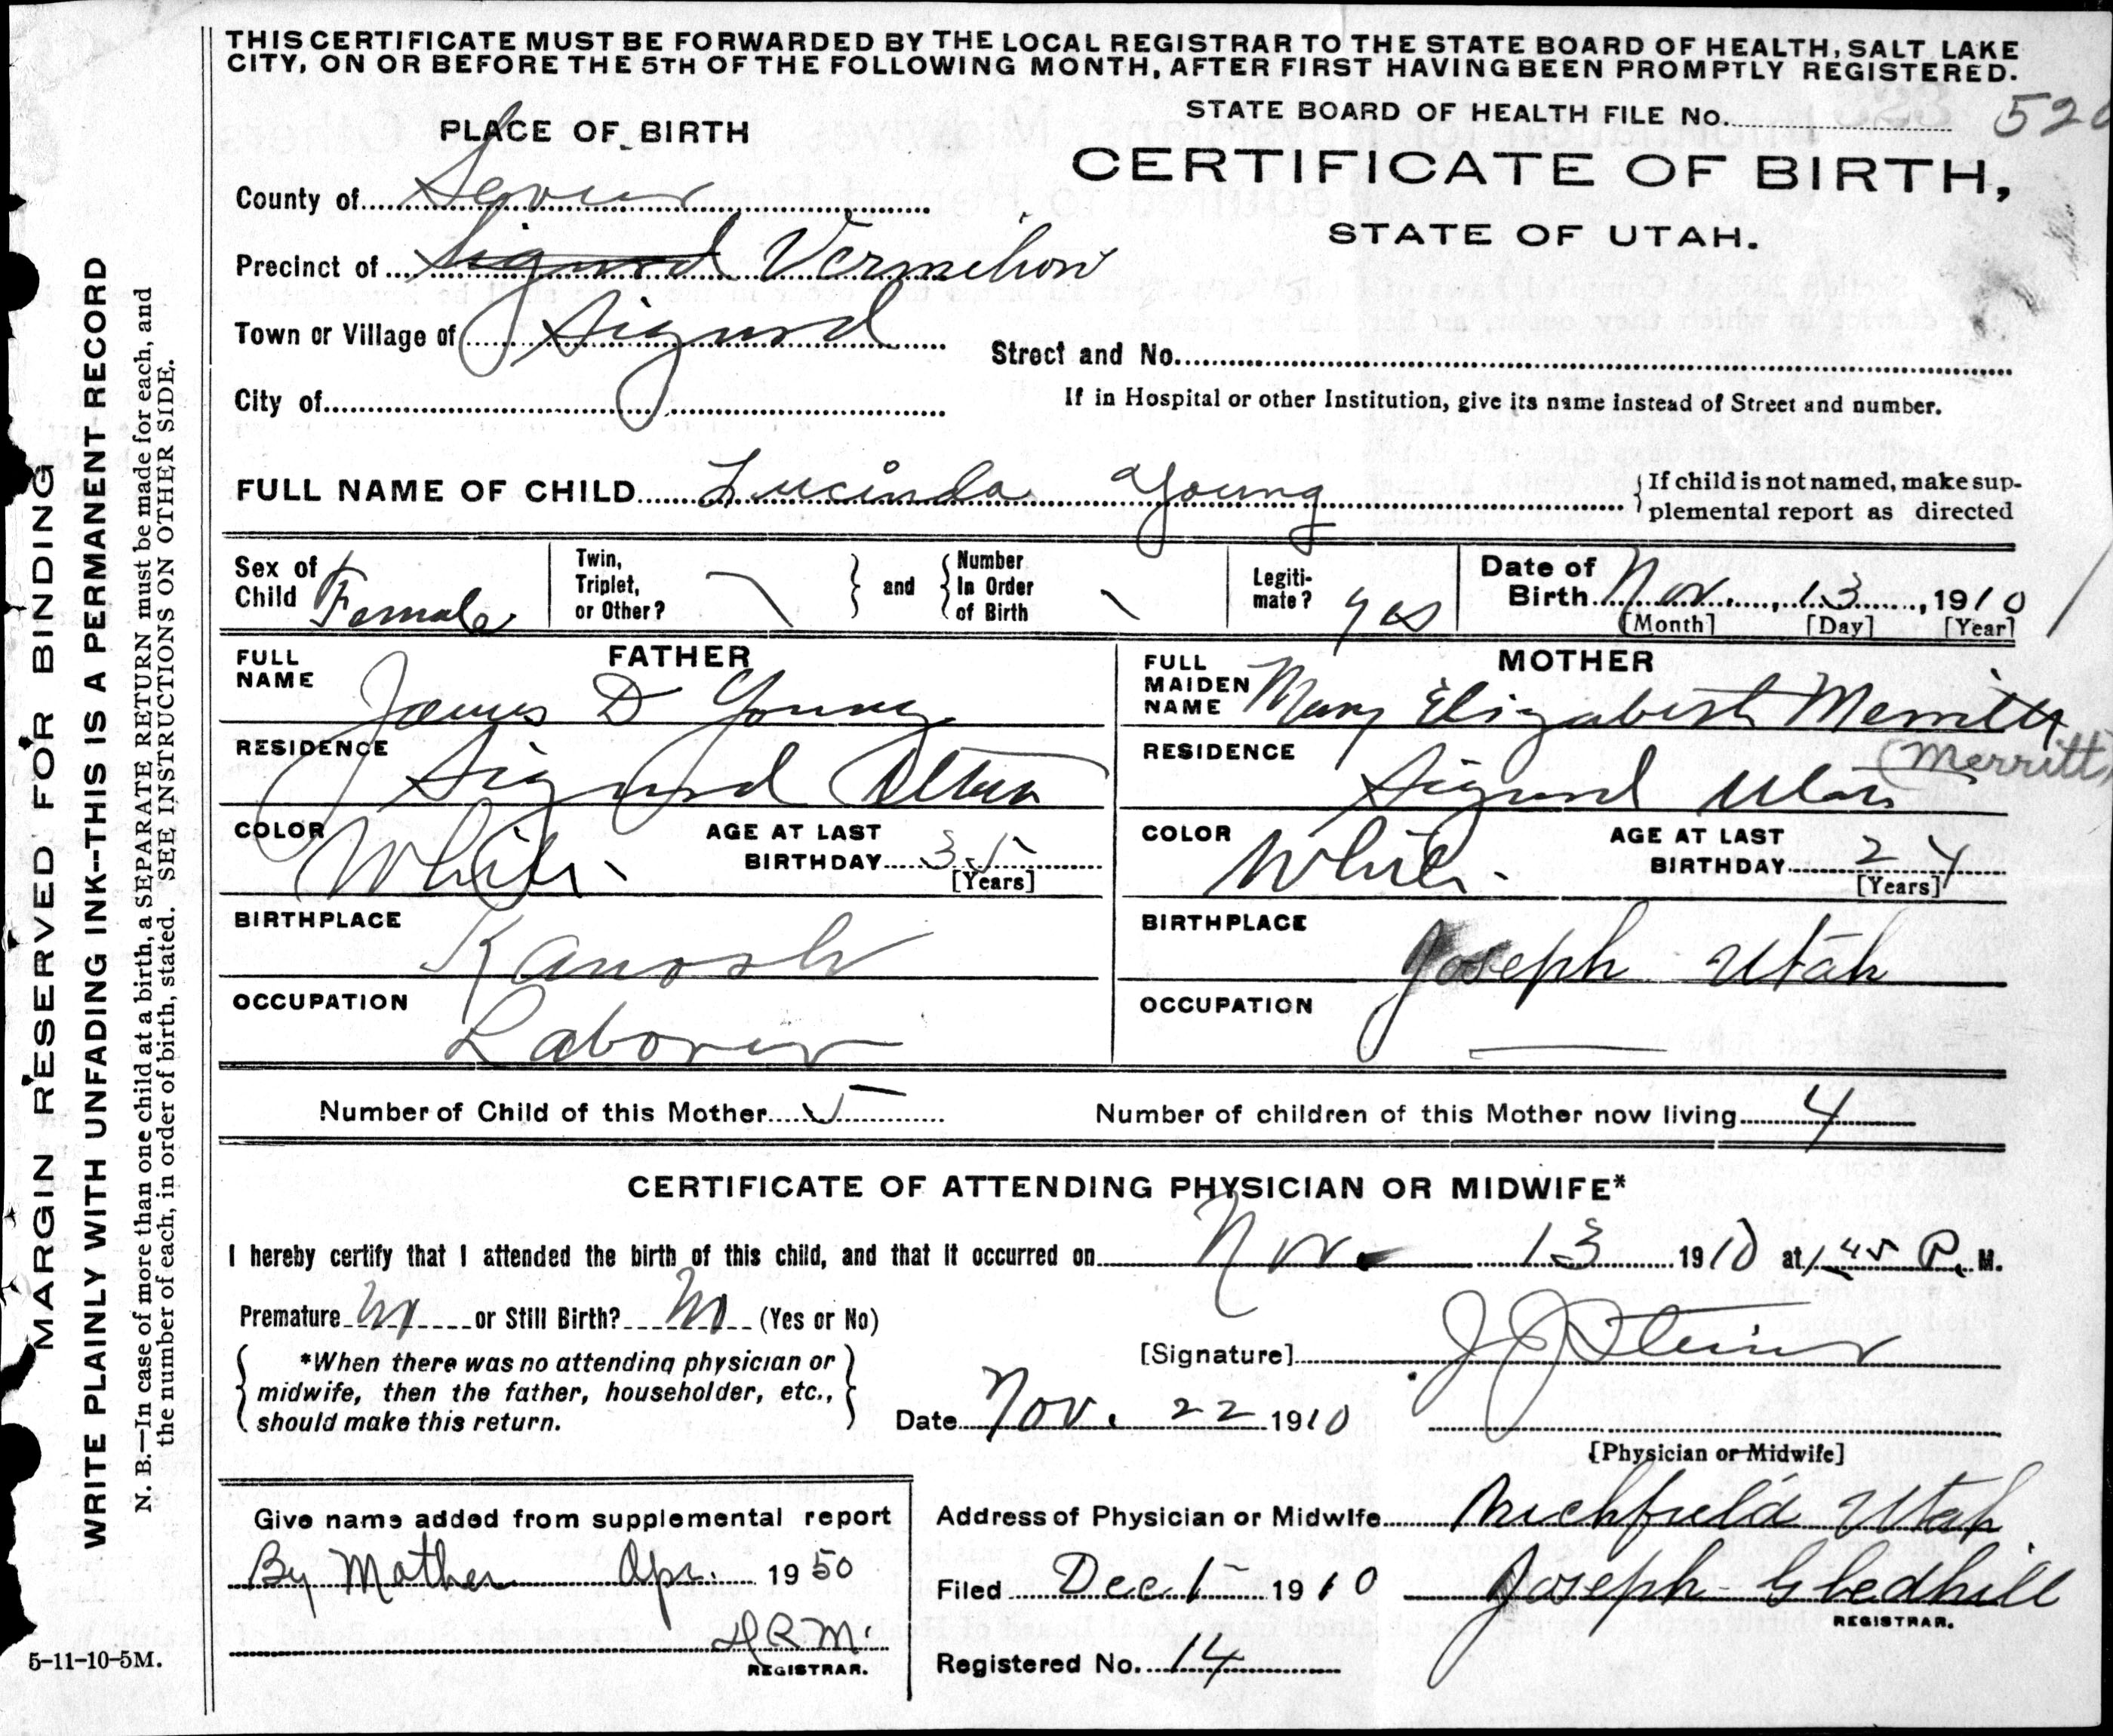 THIS CERTIFICATE MUST BE FORWARDED BY THE LOCAL REGISTRAR TO THE STATE BOARD OF HEALTH, SALT LAKE
CITY, ON OR BEFORE THE 5TH OF THE FOLLOWING MONTH, AFTER FIRST HAVING BEEN PROMPTLY REGISTERED.
STATE BOARD OF HEALTH FILE No. 520
CERTIFICATE OF BIRTH,
STATE OF UTAH.
PLACE OF BIRTH
County of Sevier
Precinct of Sigurd Vermilion
Town or Village of Sigurd
Street and No.
City of
If in Hospital or other Institution, give its name instead of Street and number.
FULL NAME OF CHILD Lucinda Young
If child is not named, make sup-
plemental report as directed
Sex of Child Female
Twin, Triplet, or Other?
and
Number In Order of Birth
Legiti-
mate? yes
Date of Birth Nov. 13, 1910
[Month] [Day] [Year]
FATHER
FULL NAME James D Young
RESIDENCE Sigurd Utah
COLOR White
AGE AT LAST BIRTHDAY 35
[Years]
BIRTHPLACE Kanosh
OCCUPATION Laborer
MOTHER
FULL MAIDEN NAME Mary Elizabeth Merritt
(Merritt)
RESIDENCE Sigurd Utah
COLOR White
AGE AT LAST BIRTHDAY 24
[Years]
BIRTHPLACE Joseph Utah
OCCUPATION
Number of Child of this Mother 5
Number of children of this Mother now living 4
CERTIFICATE OF ATTENDING PHYSICIAN OR MIDWIFE*
I hereby certify that I attended the birth of this child, and that it occurred on Nov. 13 1910 at 1 45 P. M.
Premature No or Still Birth? No (Yes or No)
*When there was no attending physician or
midwife, then the father, householder, etc.,
should make this return.
[Signature] J J Steiner
Date Nov. 22 1910
[Physician or Midwife]
Give name added from supplemental report
By Mother Apr. 1950
D.R.M.
REGISTRAR.
Address of Physician or Midwife Richfield Utah
Filed Dec 1 1910 Joseph Gledhill
REGISTRAR.
Registered No. 14
5-11-10-5M.
MARGIN RESERVED FOR BINDING
WRITE PLAINLY WITH UNFADING INK--THIS IS A PERMANENT RECORD
N. B.—In case of more than one child at a birth, a SEPARATE RETURN must be made for each, and
the number of each, in order of birth, stated. SEE INSTRUCTIONS ON OTHER SIDE.